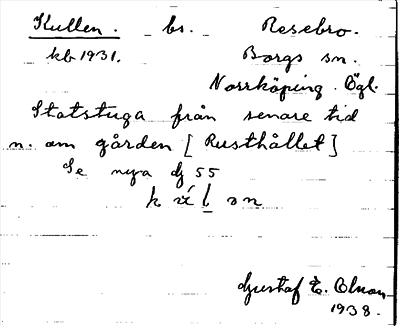 Kullen. bs. Resebro.
kb 1931. Borgs sn.
Norrköping. Ögl.
Statstuga från senare tid
n. om gården [Rusthållet]
Se nya dj 55
Gustaf E. Olson
1938.